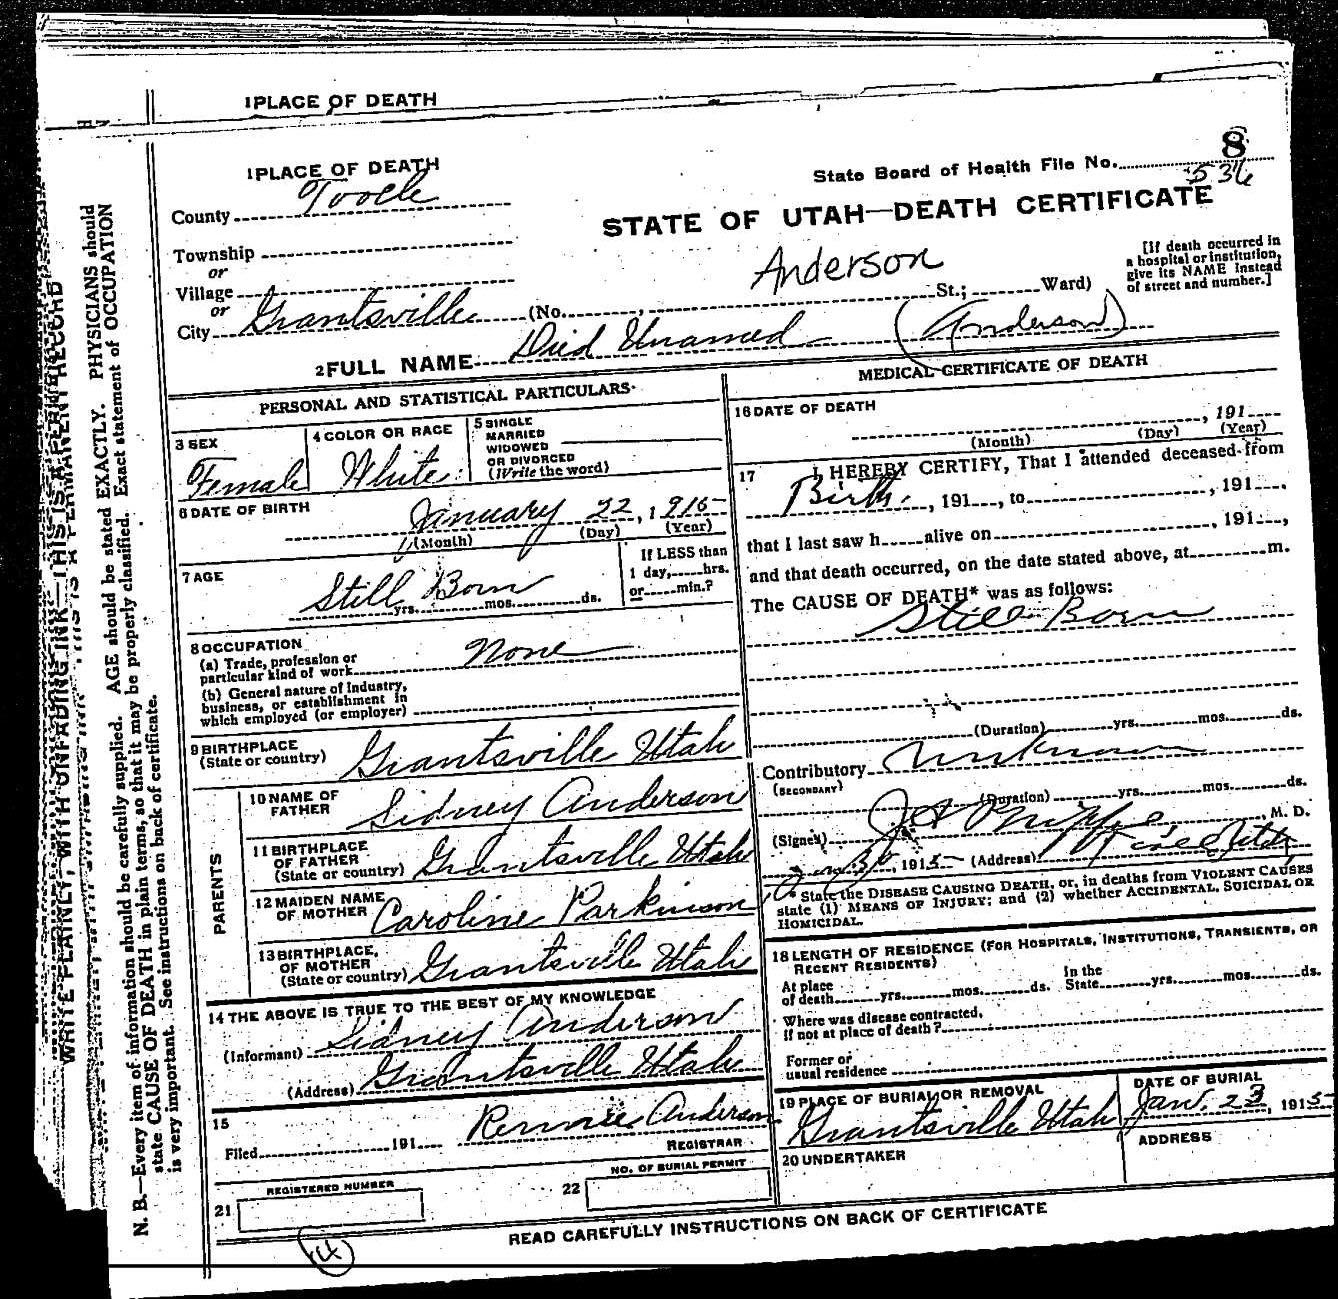 1 PLACE OF DEATH
1 PLACE OF DEATH
County Tooele
Township
or
Village
or
City Grantsville (No. , St.; Ward)
State Board of Health File No. 8
536
STATE OF UTAH—DEATH CERTIFICATE
Anderson
[If death occurred in
a hospital or institution,
give its NAME instead
of street and number.]
2 FULL NAME Died Unamed (Anderson)
PERSONAL AND STATISTICAL PARTICULARS
3 SEX
Female
4 COLOR OR RACE
White
5 SINGLE
MARRIED
WIDOWED
OR DIVORCED
(Write the word)
6 DATE OF BIRTH
January 22, 1915
(Month) (Day) (Year)
7 AGE
Still Born
yrs. mos. ds.
If LESS than
1 day, hrs.
or min.?
8 OCCUPATION
(a) Trade, profession or
particular kind of work None
(b) General nature of industry,
business, or establishment in
which employed (or employer)
9 BIRTHPLACE
(State or country) Grantsville Utah
PARENTS
10 NAME OF
FATHER Sidney Anderson
11 BIRTHPLACE
OF FATHER
(State or country) Grantsville Utah
12 MAIDEN NAME
OF MOTHER Caroline Parkinson
13 BIRTHPLACE,
OF MOTHER
(State or country) Grantsville Utah
14 THE ABOVE IS TRUE TO THE BEST OF MY KNOWLEDGE
(Informant) Sidney Anderson
(Address) Grantsville Utah
15
Filed 191 Rennie Anderson
REGISTRAR
REGISTERED NUMBER
21
NO. OF BURIAL PERMIT
22
MEDICAL CERTIFICATE OF DEATH
16 DATE OF DEATH
, 191
(Month) (Day) (Year)
17 I HEREBY CERTIFY, That I attended deceased from
Birth, 191 , to , 191 ,
that I last saw h alive on , 191 ,
and that death occurred, on the date stated above, at m.
The CAUSE OF DEATH* was as follows:
Still Born
(Duration) yrs. mos. ds.
Contributory Unknown
(SECONDARY)
(Duration) yrs. mos. ds.
(Signed) J A Phipps, M. D.
30, 1915 (Address)
* State the DISEASE CAUSING DEATH, or, in deaths from VIOLENT CAUSES
state (1) MEANS OF INJURY; and (2) whether ACCIDENTAL, SUICIDAL OR
HOMICIDAL.
18 LENGTH OF RESIDENCE (FOR HOSPITALS, INSTITUTIONS, TRANSIENTS, OR
RECENT RESIDENTS)
At place
of death yrs. mos. ds.
In the
State yrs. mos. ds.
Where was disease contracted,
if not at place of death?
Former or
usual residence
19 PLACE OF BURIAL OR REMOVAL
Grantsville Utah
DATE OF BURIAL
Jan. 23, 1915
20 UNDERTAKER
ADDRESS
READ CAREFULLY INSTRUCTIONS ON BACK OF CERTIFICATE
WRITE PLAINLY, WITH UNFADING INK—THIS IS A PERMANENT RECORD
N. B.—Every item of information should be carefully supplied. AGE should be stated EXACTLY. PHYSICIANS should
state CAUSE OF DEATH in plain terms, so that it may be properly classified. Exact statement of OCCUPATION
is very important. See instructions on back of certificate.